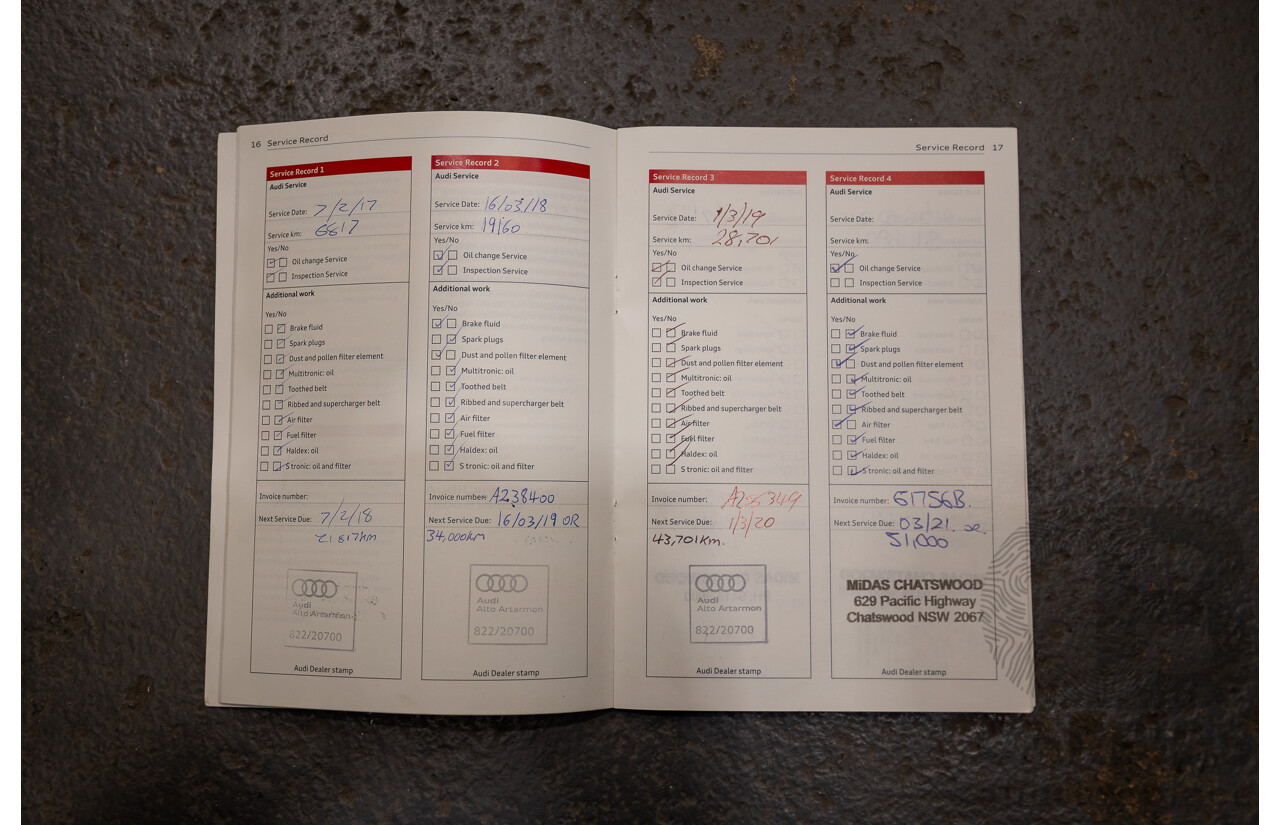 16 Service Record
Service Record 1
Audi Service
Service Date: 7/2/17
Service km: 6817
Yes/No
Oil change Service
Inspection Service
Additional work
Yes/No
Brake fluid
Spark plugs
Dust and pollen filter element
Multitronic: oil
Toothed belt
Ribbed and supercharger belt
Air filter
Fuel filter
Haldex: oil
S tronic: oil and filter
Invoice number:
Next Service Due: 7/2/18
21817km
Audi
Alto Artarmon
822/20700
Audi Dealer stamp
Service Record 2
Audi Service
Service Date: 16/03/18
Service km: 19160
Yes/No
Oil change Service
Inspection Service
Additional work
Yes/No
Brake fluid
Spark plugs
Dust and pollen filter element
Multitronic: oil
Toothed belt
Ribbed and supercharger belt
Air filter
Fuel filter
Haldex: oil
S tronic: oil and filter
Invoice number: A238400
Next Service Due: 16/03/19 OR
34,000km
Audi
Alto Artarmon
822/20700
Audi Dealer stamp
Service Record 17
Service Record 3
Audi Service
Service Date: 1/3/19
Service km: 28,701
Yes/No
Oil change Service
Inspection Service
Additional work
Yes/No
Brake fluid
Spark plugs
Dust and pollen filter element
Multitronic: oil
Toothed belt
Ribbed and supercharger belt
Air filter
Fuel filter
Haldex: oil
S tronic: oil and filter
Invoice number:
Next Service Due: 1/3/20
43,701km.
Audi
Alto Artarmon
822/20700
Audi Dealer stamp
Service Record 4
Audi Service
Service Date:
Service km:
Yes/No
Oil change Service
Inspection Service
Additional work
Yes/No
Brake fluid
Spark plugs
Dust and pollen filter element
Multitronic: oil
Toothed belt
Ribbed and supercharger belt
Air filter
Fuel filter
Haldex: oil
S tronic: oil and filter
Invoice number: 61756B.
Next Service Due: 03/21.
51,000
MiDAS CHATSWOOD
629 Pacific Highway
Chatswood NSW 2067
Audi Dealer stamp